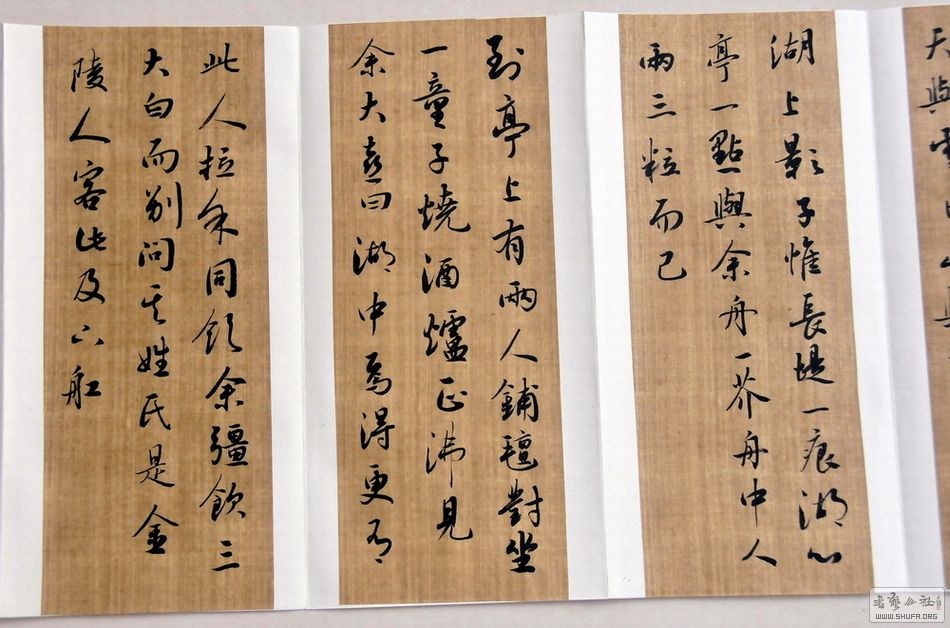 天與
湖上影子惟長堤一痕湖心
亭一點與余舟一芥舟中人
兩三粒而已
到亭上有兩人鋪氊對坐
一童子燒酒爐正沸見
余大喜曰湖中焉得更有
此人拉余同飲余彊飲三
大白而別問其姓氏是金
陵人客此及下舡
書藝公社
WWW.SHUFA.ORG